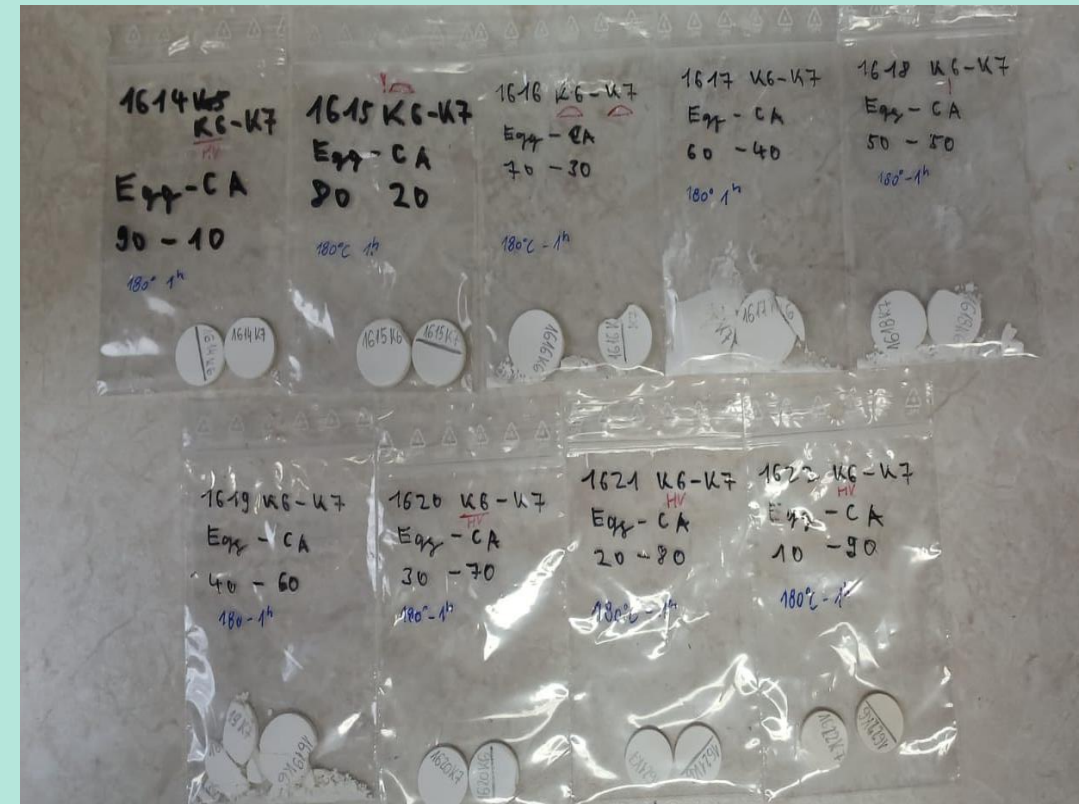 1614 K5
K6-K7
HV
Egg-CA
90-10
180° 1h
1614K6
1614K7
!
1615 K6-K7
Egg-CA
80 20
180°C 1h
1615K6
1615K7
1616 K6-K7
Egg-CA
70-30
180°C-1h
1616K6
1616K
1617 K6-K7
Egg-CA
60-40
180° 1h
1617
1618 K6-K7
Egg-CA
50-50
180°-1h
1618K7
1618K
1619 K6-K7
Egg-CA
40-60
180-1h
1619K6
1620 K6-K7
HV
Egg-CA
30-70
180°-1h
1620K7
1620K6
1621 K6-K7
HV
Egg-CA
20-80
180°C-1h
1622 K6-K7
HV
Egg-CA
10-90
180°C-1h
1622K7
1622K6